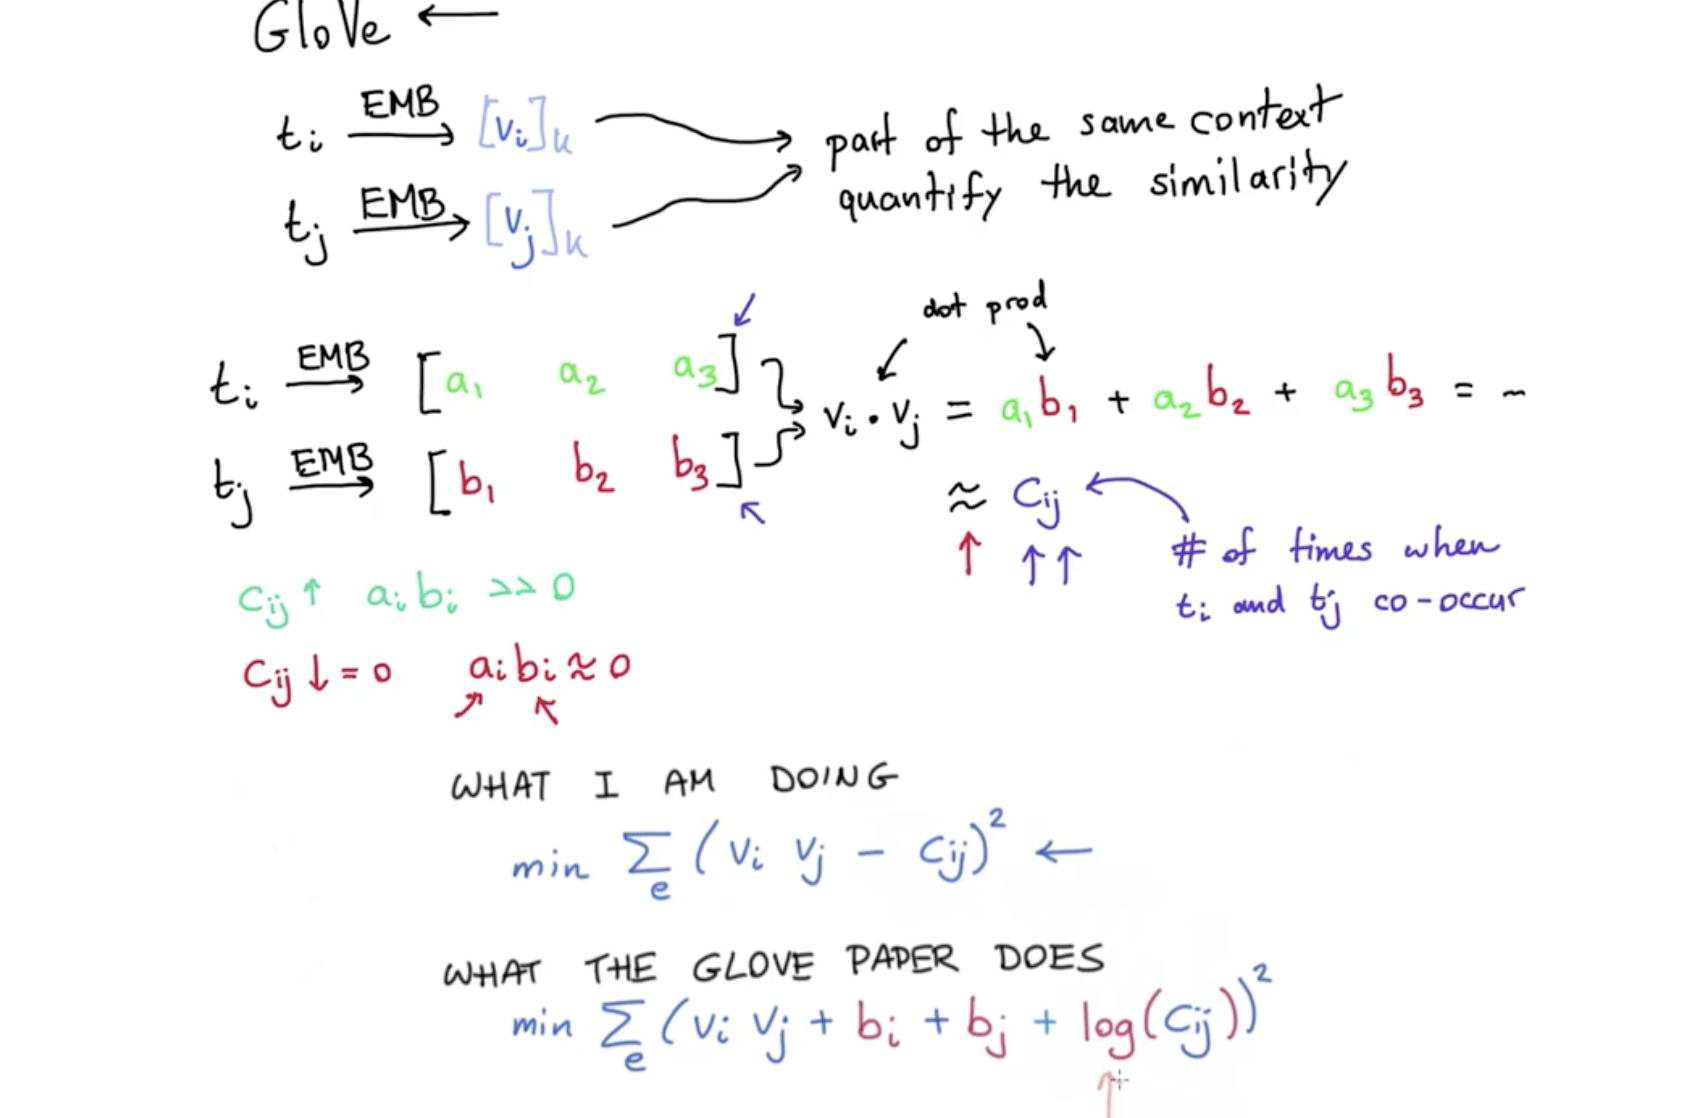 GloVe ←
tᵢ EMB→ [vᵢ]ₖ
part of the same context
tⱼ EMB→ [vⱼ]ₖ
quantify the similarity
dot prod
tᵢ EMB→ [a₁ a₂ a₃]
vᵢ · vⱼ = a₁b₁ + a₂b₂ + a₃b₃ = ~
tⱼ EMB→ [b₁ b₂ b₃]
≈ Cᵢⱼ
# of times when
tᵢ and tⱼ co-occur
Cᵢⱼ ↑ aᵢ bᵢ >> 0
Cᵢⱼ ↓ = 0 aᵢ bᵢ ≈ 0
WHAT I AM DOING
min Σₑ (vᵢ vⱼ − Cᵢⱼ)² ←
WHAT THE GLOVE PAPER DOES
min Σₑ (vᵢ vⱼ + bᵢ + bⱼ + log(Cᵢⱼ))²